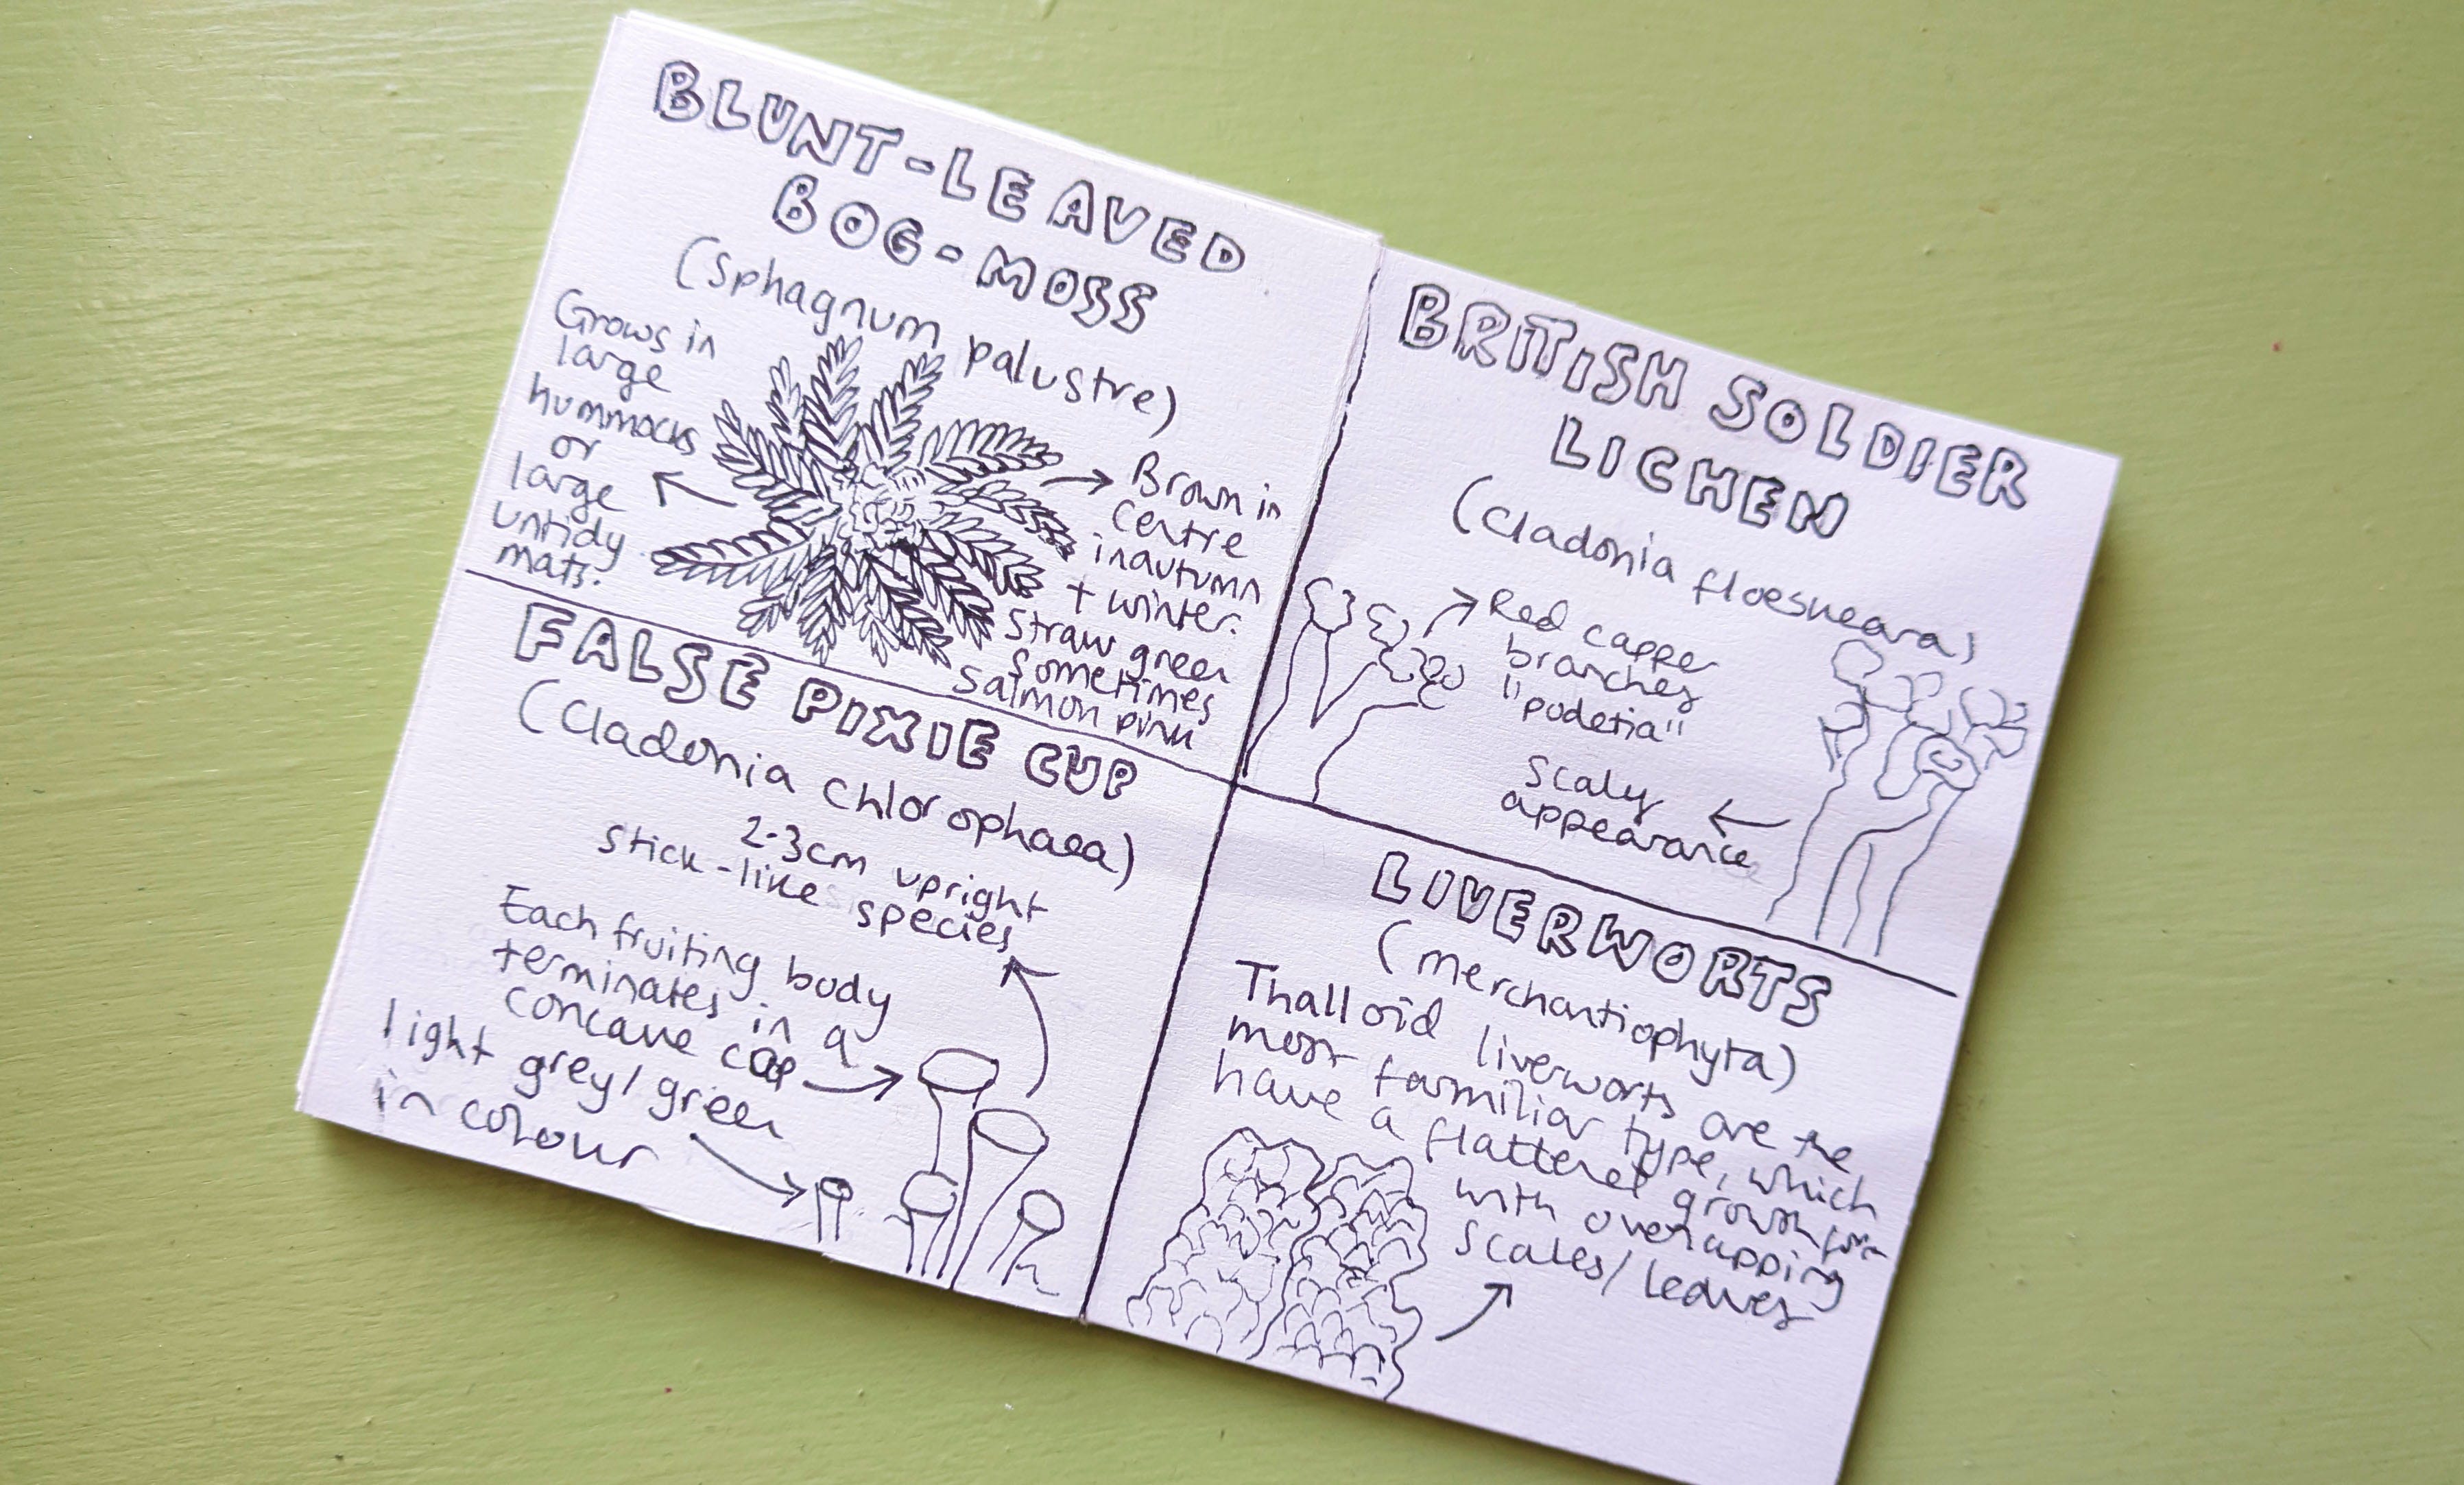 BLUNT-LEAVED
BOG-MOSS
(Sphagnum palustre)
Grows in
large
hummocks
or
large
untidy
mats.
Brown in
centre
in autumn
+ winter.
Straw green
sometimes
salmon pink
FALSE PIXIE CUP
(Cladonia chlorophaea)
2-3cm upright
stick-like species
Each fruiting body
terminates in a
concave cap
light grey/green
in colour
BRITISH SOLDIER
LICHEN
(Cladonia floesкeana)
Red capper
branches
"podetia"
Scaly
appearance
LIVERWORTS
(merchantiophyta)
Thalloid liverworts are the
most familiar type, which
have a flattened growth form
with overlapping
scales/leaves